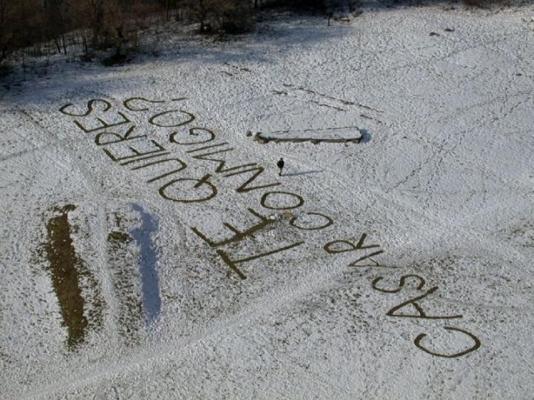 TE QUIERES
CASAR CONMIGO?